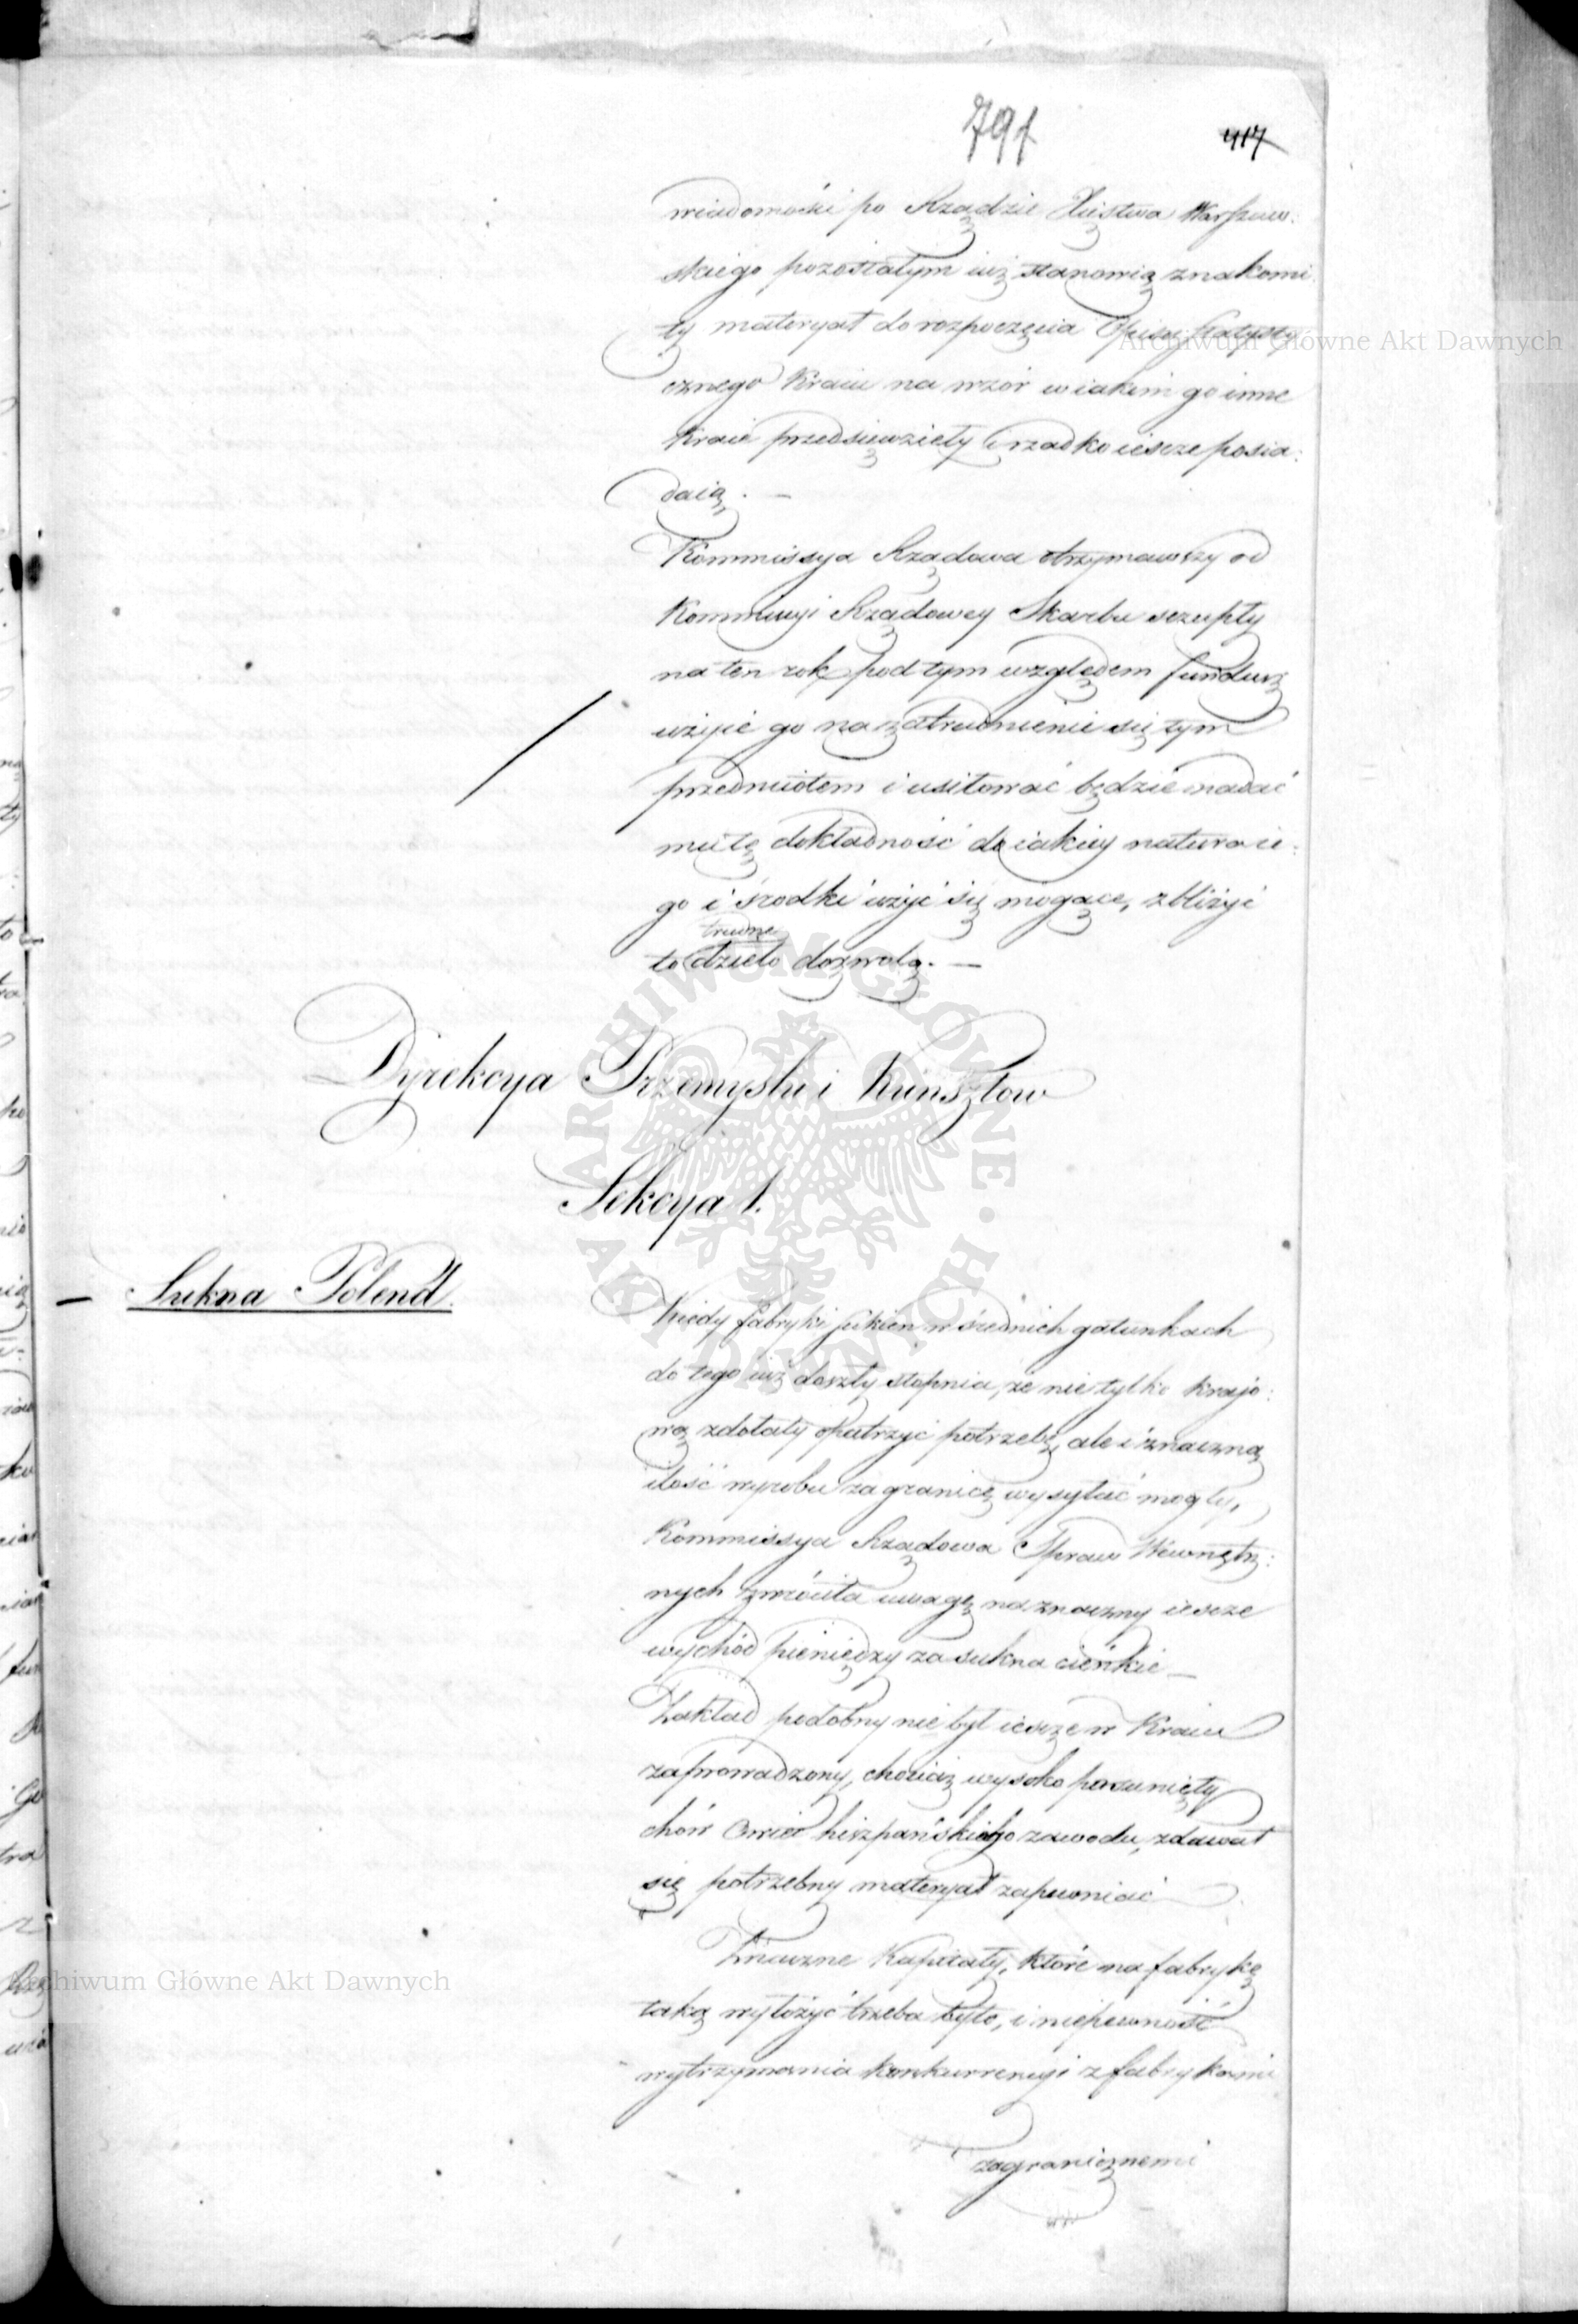 791
417
wiadomości po Rządzie Xięstwa Warszaw:
skiego pozostałym iuż stanowią znakomi
ty materyał do rozpoczęcia Opisu Statysty
cznego Kraiu na wzór w iakim go inne
kraie przedsięwzięły i rzadko iescze posia:
daią. —
Kommissya Rządowa otrzymawszy od
Kommissyi Rządowey Skarbu sczupły
na ten rok pod tym względem fundusz
użyie go na zatrudnienie się tym
przedmiotem i usiłować będzie nadać
mu tę dokładność do iakiey natura ie:
go i środki użyć się mogące, zbliżyć
trudne
to dzieło dozwolą. —
Dyrekcya Przemysłu i Kunsztow
Sekcya 1.
— Sukna Polend.
Kiedy fabryki sukien w średnich gatunkach
do tego iuż doszły stopnia, że nie tylko krajo:
wą zdołały opatrzyć potrzebę, ale i znaczną
ilość wyrobu za granicę wysyłać mogły,
Kommissya Rządowa Spraw Wewnętrz:
nych zwróciła uwagę na znaczny iescze
wychód pieniędzy za sukna cieńkie —
Zakład podobny nie był iescze w Kraiu
zaprowadzony, chociaż wysoko posunięty
chów Owiec hiszpańskiego zawodu, zdawał
się potrzebny materyał zapewniać
Znaczne Kapitały, które na fabrykę
taką wyłożyć trzeba było, i niepewność
wytrzymania konkurrencyi z fabrykami
zagranicznemi
Archiwum Główne Akt Dawnych
Archiwum Główne Akt Dawnych
ARCHIWUM GŁÓWNE AKT DAWNYCH